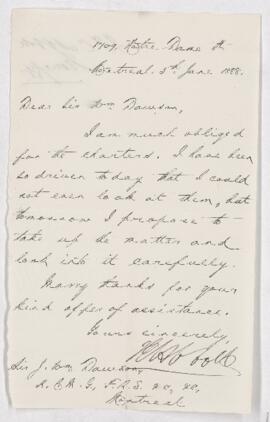 1709, Notre Dame St
Montreal. 5th June 1888.
Dear Sir Wm Dawson,
I am much obliged
for the charters. I have been
so driven today that I could
not even look at them, but
tomorrow I propose to
take up the matter and
look into it carefully.
Many thanks for your
kind offer of assistance.
Yours sincerely
Sir J. Wm Dawson,
K.C.M.G., F.R.S. &c, &c,
Montreal